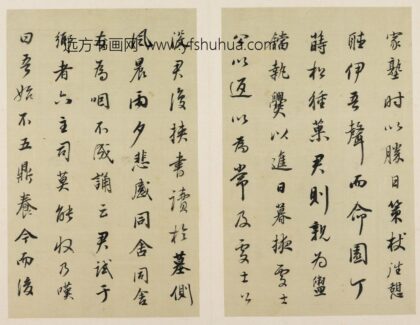 家塾时以胜日策杖往憩
睦伊吾聲而命園丁
蒔松種菓君則親为盥
鐺執爨以進日暮掖雯士
以返以为常及雯士以
没君復挾書讀於墓側
風晨雨夕悲感同舍同舍
為咽不成誦云君試于
鄉者六主司莫能收乃嘆
曰吾始不五鼎養今而後
远方书画网 www.yfshuhua.com